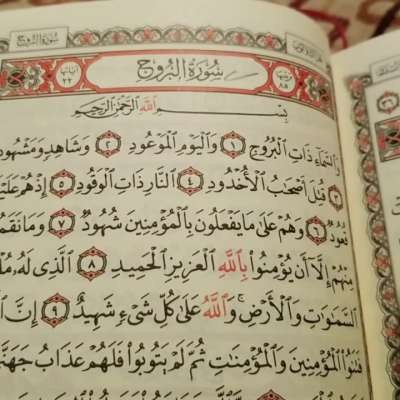 سُورَةُ البُرُوجِ
آيَاتُهَا ٢٢
تَرْتِيبُهَا ٨٥
بِسْمِ ٱللَّهِ ٱلرَّحْمَٰنِ ٱلرَّحِيمِ
وَٱلسَّمَآءِ ذَاتِ ٱلْبُرُوجِ ١ وَٱلْيَوْمِ ٱلْمَوْعُودِ ٢ وَشَاهِدٍ وَمَشْهُودٍ
٣ قُتِلَ أَصْحَٰبُ ٱلْأُخْدُودِ ٤ ٱلنَّارِ ذَاتِ ٱلْوَقُودِ ٥ إِذْ هُمْ عَلَيْهَا
قُعُودٌ ٦ وَهُمْ عَلَىٰ مَا يَفْعَلُونَ بِٱلْمُؤْمِنِينَ شُهُودٌ ٧ وَمَا نَقَمُوا۟
مِنْهُمْ إِلَّآ أَن يُؤْمِنُوا۟ بِٱللَّهِ ٱلْعَزِيزِ ٱلْحَمِيدِ ٨ ٱلَّذِى لَهُۥ مُلْكُ
ٱلسَّمَٰوَٰتِ وَٱلْأَرْضِ ۚ وَٱللَّهُ عَلَىٰ كُلِّ شَىْءٍ شَهِيدٌ ٩ إِنَّ ٱلَّذِينَ
فَتَنُوا۟ ٱلْمُؤْمِنِينَ وَٱلْمُؤْمِنَٰتِ ثُمَّ لَمْ يَتُوبُوا۟ فَلَهُمْ عَذَابُ جَهَنَّمَ